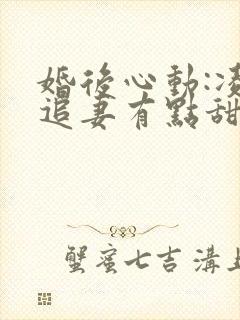 婚後心動:凌
追妻有點甜
蟹蜜七吉 溝上